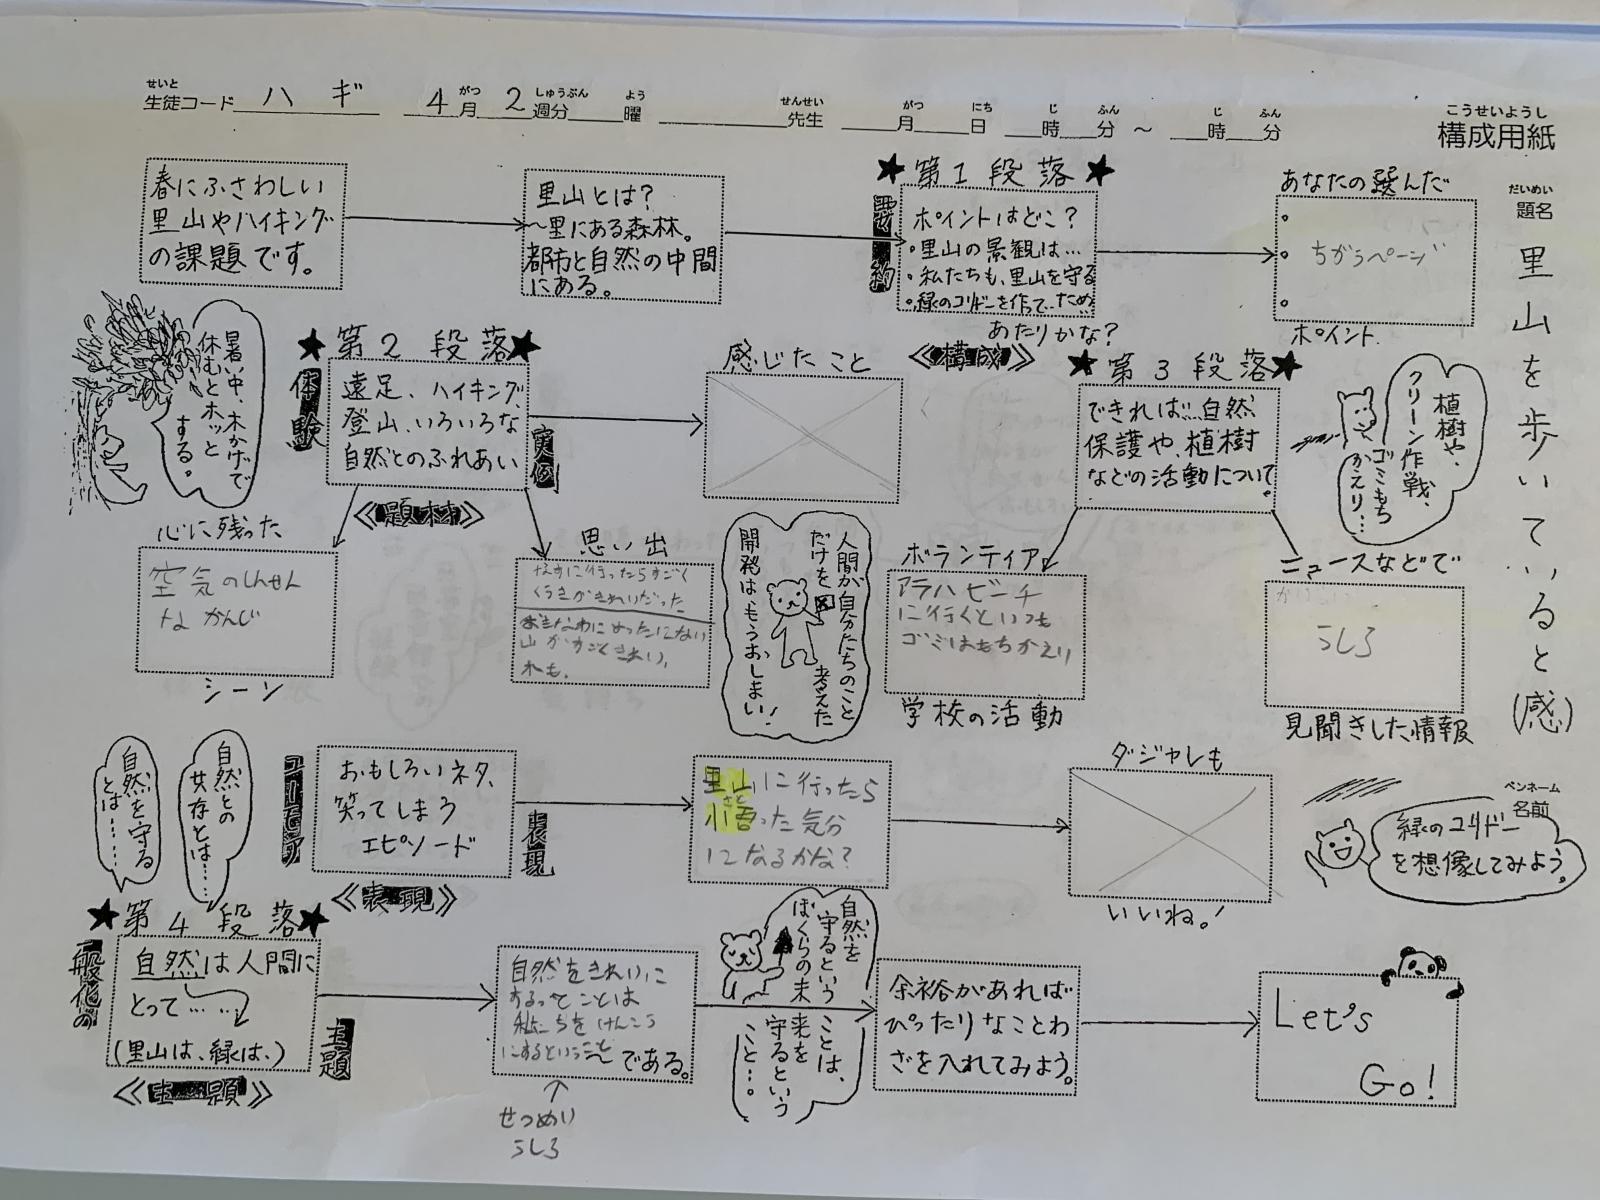 せいと がつ しゅうぶん よう せんせい がつ にち じ ふん じ ふん
生徒コード ハギ 4月2週分 曜 先生 月 日 時 分 ～ 時 分
こうせいようし
構成用紙
だいめい
題名
里山を歩いていると(感)
ペンネーム
名前
春にふさわしい
里山やハイキング
の課題です。
里山とは?
～里にある森林。
都市と自然の中間
にある。
★第1段落★
要約
ポイントはどこ?
・里山の景観は…
・私たちも、里山を守る
・緑のコリドーを作って…ため
あたりかな?
あなたの選んだ
ちがうページ
ポイント
暑い中、木かげで
休むとホッと
する。
★第2段落★
体験
遠足、ハイキング、
登山、いろいろな
自然とのふれあい
実例
《題材》
感じたこと
《構成》
★第3段落★
できれば…自然
保護や、植樹
などの活動について。
植樹や、
クリーン作戦、
ゴミもち
かえり…
心に残った
空気のしんせん
なかんじ
シーン
思い出
に行ったらすごく
くうきがきれいだった
おきなわにめったにない
山がすごくきれい。
人間が自分たちのこと
だけを考えた
開発は、もうおしまい!
ボランティア
アラハビーチ
に行くといつも
ゴミはもちかえり
学校の活動
ニュースなどで
うしろ
見聞きした情報
自然との
共存とは……
自然を守る
とは……
ユーモア
おもしろいネタ、
笑ってしまう
エピソード
表現
《表現》
さと
里山に行ったら
小悟った気分
になるかな?
ダジャレも
いいね!
緑のコリドー
を想像してみよう。
★第4段落★
一般化の
自然は人間に
とって……
(里山は、緑は、)
主題
《主題》
自然をきれいに
するってことは
私たちをけんこう
にするということである。
↑
せつめい
うしろ
自然を
守るという
ことは、
ぼくらの未
来を
守るという
こと…。
余裕があれば
ぴったりなことわ
ざを入れてみよう。
Let's
Go!